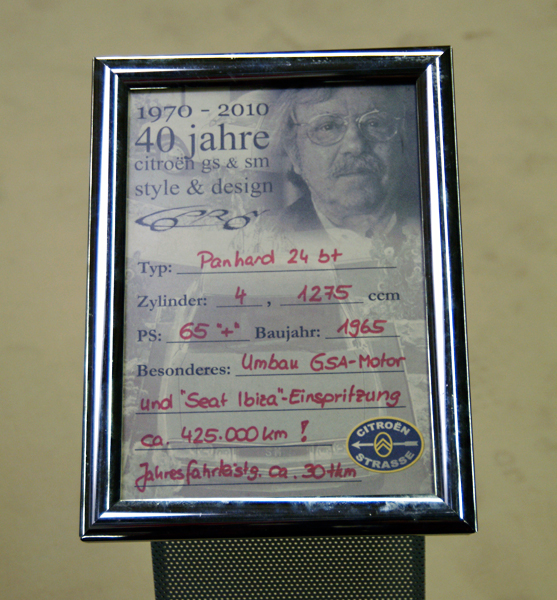 1970 - 2010
40 jahre
citroën gs & sm
style & design
Typ: Panhard 24 bt
Zylinder: 4 , 1275 ccm
PS: 65 "+" Baujahr: 1965
Besonderes: Umbau GSA-Motor
und "Seat Ibiza"-Einspritzung
ca. 425.000 km !
Jahresfahrleistg. ca. 30tkm
CITROËN
STRASSE